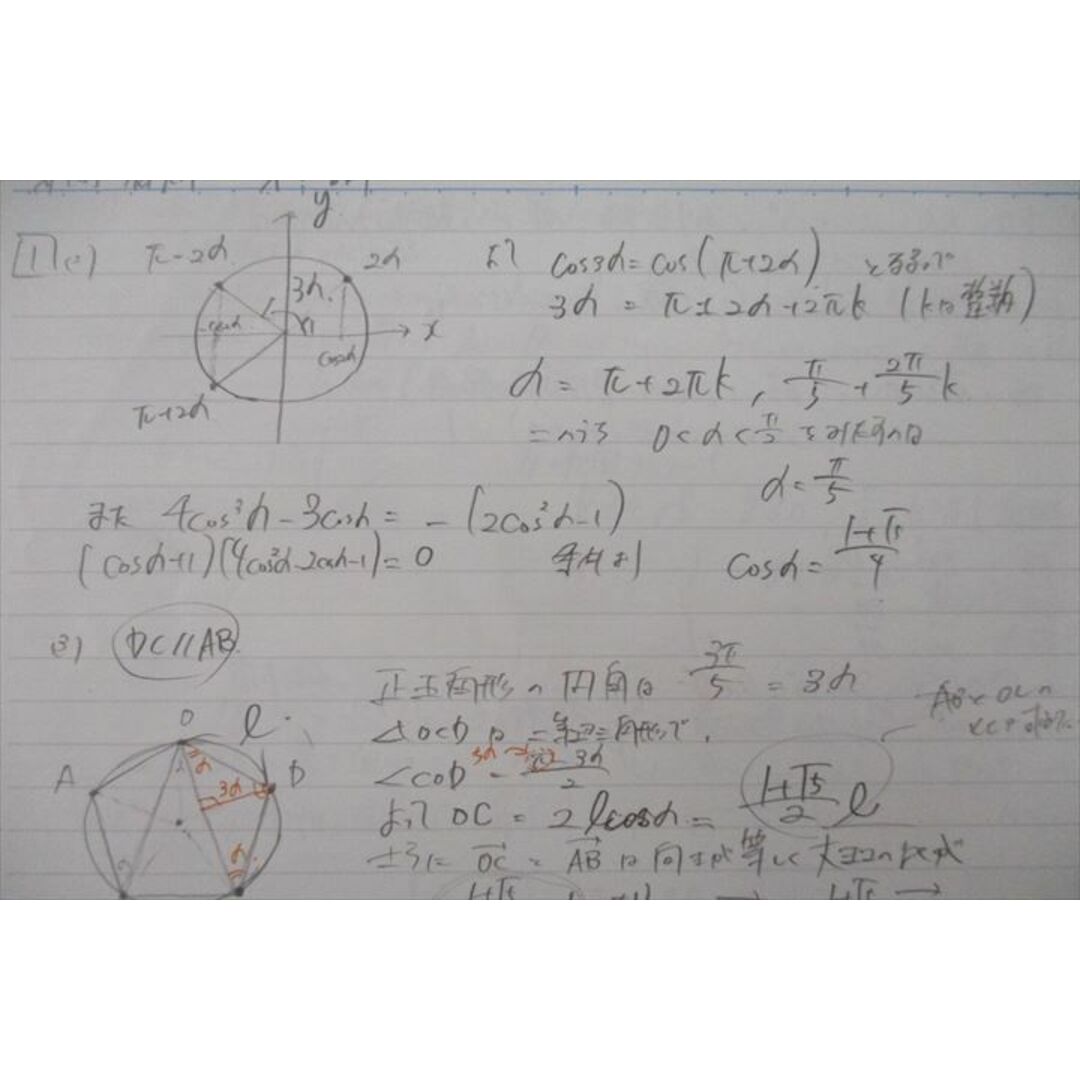 1 (2)
y
π-2α
2α
3α
x
cos2α
π+2α
より cos3α=cos(π+2α) となるので
3α = π±2α+2πk (kは整数)
α = π+2πk, π/5 + 2π/5 k
0<α<π/2 をみたすのは
α=π/5
また 4cos³α-3cosα= -(2cos²α-1)
(cosα+1)(4cos²α-2cosα-1)=0
条件より
cosα= (1+√5)/4
(3) DC//AB
正五角形の内角は 3π/5 = 3α
△OCD は二等辺三角形で、
∠COD = (π-3α)/2
よって OC = 2lcosα = (1+√5)/2 l
さらに OC = AB は向きが等しく大きさの比が
O
l
A
D
α
3α
α
1+√5
1+√5